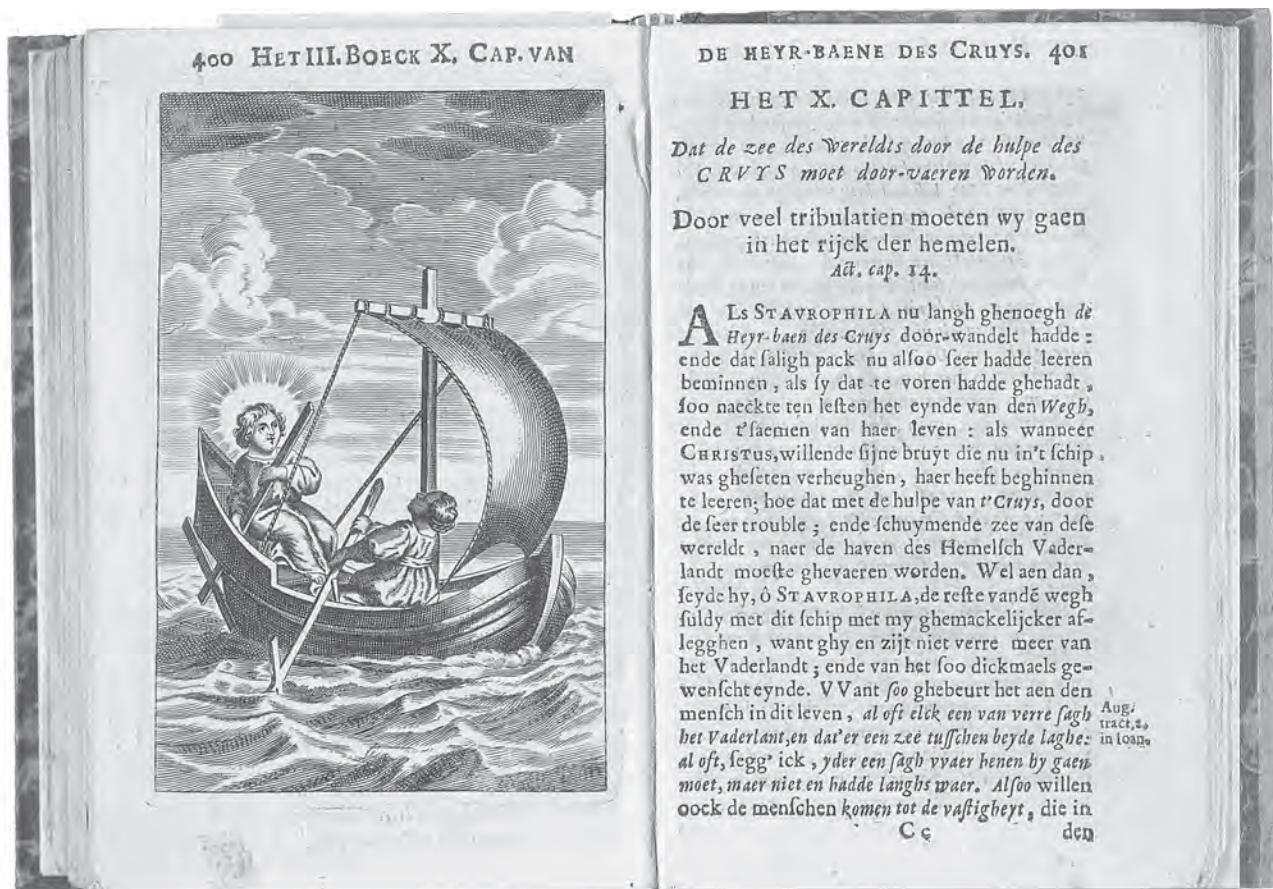 400 HET III. BOECK X. CAP. VAN
DE HEYR-BAENE DES CRUYS. 401
HET X. CAPITTEL.
Dat de zee des Wereldts door de hulpe des
CRVYS moet door-vaeren Worden.
Door veel tribulatien moeten wy gaen
in het rijck der hemelen.
Act. cap. 14.
ALs STAVROPHILA nu langh ghenoegh de
Heyr-baen des Cruys door-wandelt hadde :
ende dat ſaligh pack nu alſoo ſeer hadde leeren
beminnen , als ſy dat te voren hadde ghehadt ,
ſoo naeckte ten leſten het eynde van den Wegh,
ende t'ſaemen van haer leven : als wanneer
CHRISTUS, willende ſijne bruyt die nu in't ſchip
was gheſeten verheughen , haer heeft beghinnen
te leeren; hoe dat met de hulpe van t'Cruys, door
de ſeer trouble ; ende ſchuymende zee van deſe
wereldt , naer de haven des Hemelſch Vader-
landt moeſte ghevaeren worden. Wel aen dan ,
ſeyde hy, ô STAVROPHILA, de reſte vandē wegh
ſuldy met dit ſchip met my ghemackelijcker af-
legghen , want ghy en zijt niet verre meer van
het Vaderlandt ; ende van het ſoo dickmaels ge-
wenſcht eynde. VVant ſoo ghebeurt het aen den
menſch in dit leven , al oft elck een van verre ſagh
het Vaderlant, en dat'er een zee tuſſchen beyde laghe:
al oft, ſegg' ick , yder een ſagh vvaer henen hy gaen
moet, maer niet en hadde langhs waer. Alſoo willen
oock de menſchen komen tot de vaſtigheyt, die in
Aug.
tract. 2.
in Ioan.
C c den